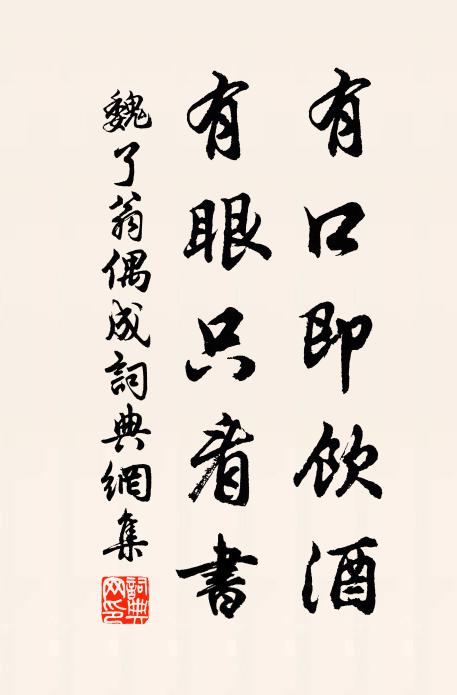 有口即飲酒
有眼只看書
魏了翁偶成詞典網集
詞典網印